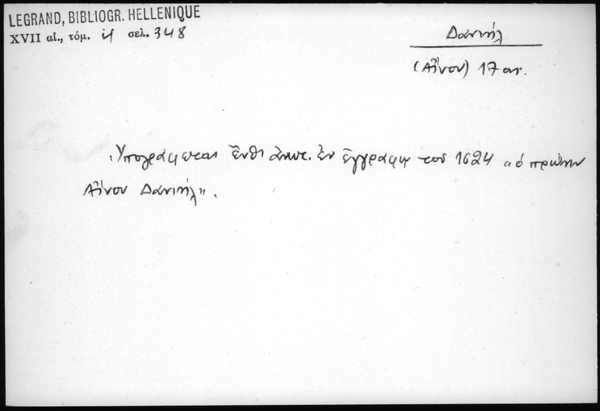 LEGRAND, BIBLIOGR. HELLENIQUE
XVII αἰ., τόμ. σελ. 348
Δανιήλ
(Αἴνου) 17 αι.
Ὑπογράφεται ἐν ἐγγράφῳ τοῦ 1624 «ὁ πρώην
Αἴνου Δανιήλ».